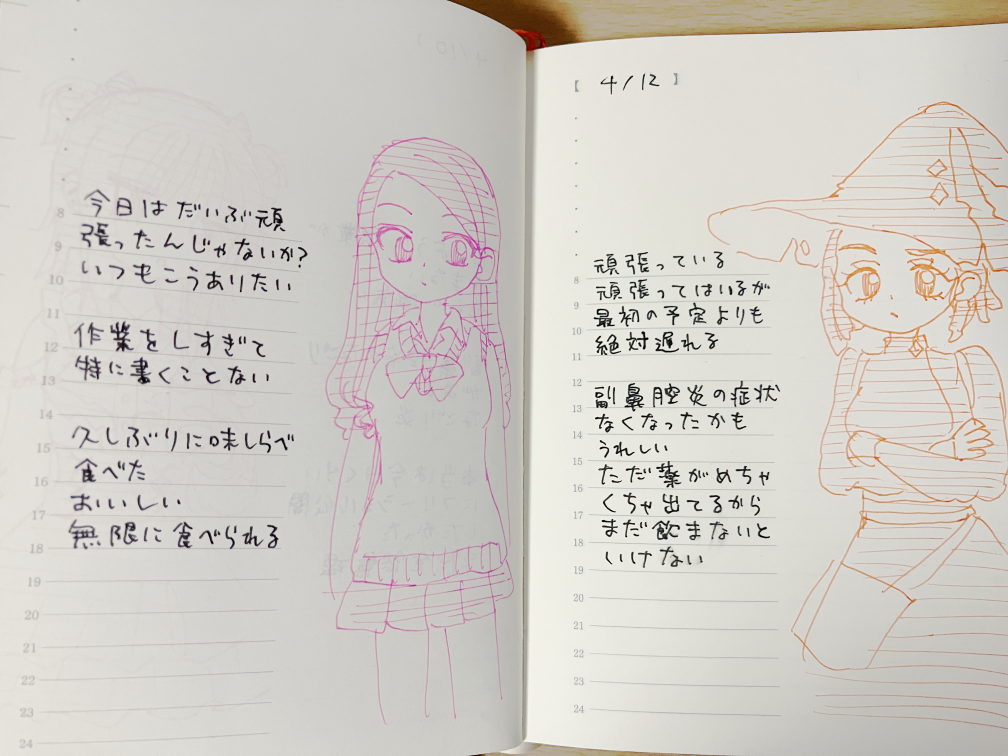 今日はだいぶ頑
張ったんじゃないか?
いつもこうありたい
作業をしすぎて
特に書くことない
久しぶりに味しらべ
食べた
おいしい
無限に食べられる
8
9
10
11
12
13
14
15
16
17
18
19
20
21
22
23
24
【 4/12 】
頑張っている
頑張ってはいるが
最初の予定よりも
絶対遅れる
副鼻腔炎の症状
なくなったかも
うれしい
ただ薬がめちゃ
くちゃ出てるから
まだ飲まないと
いけない
8
9
10
11
12
13
14
15
16
17
18
19
20
21
22
23
24